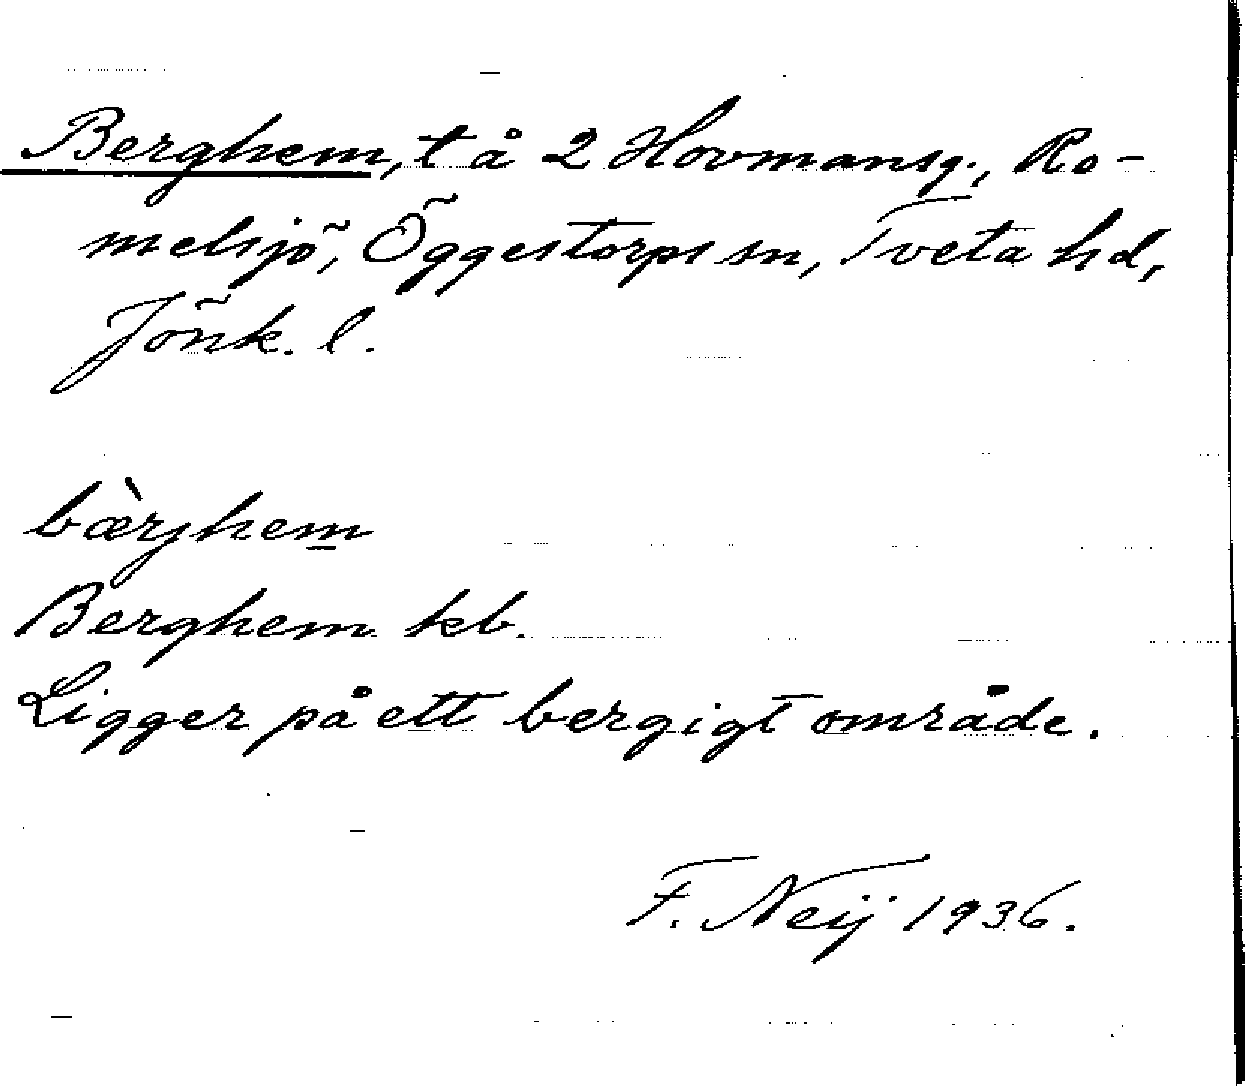 Berghem, t å 2 Hovmansg., Ro-
melsjö, Öggestorps sn, Tveta hd,
Jönk. l.
bæ̀rjhem
Berghem kb.
Ligger på ett bergigt område.
F. Neij 1936.